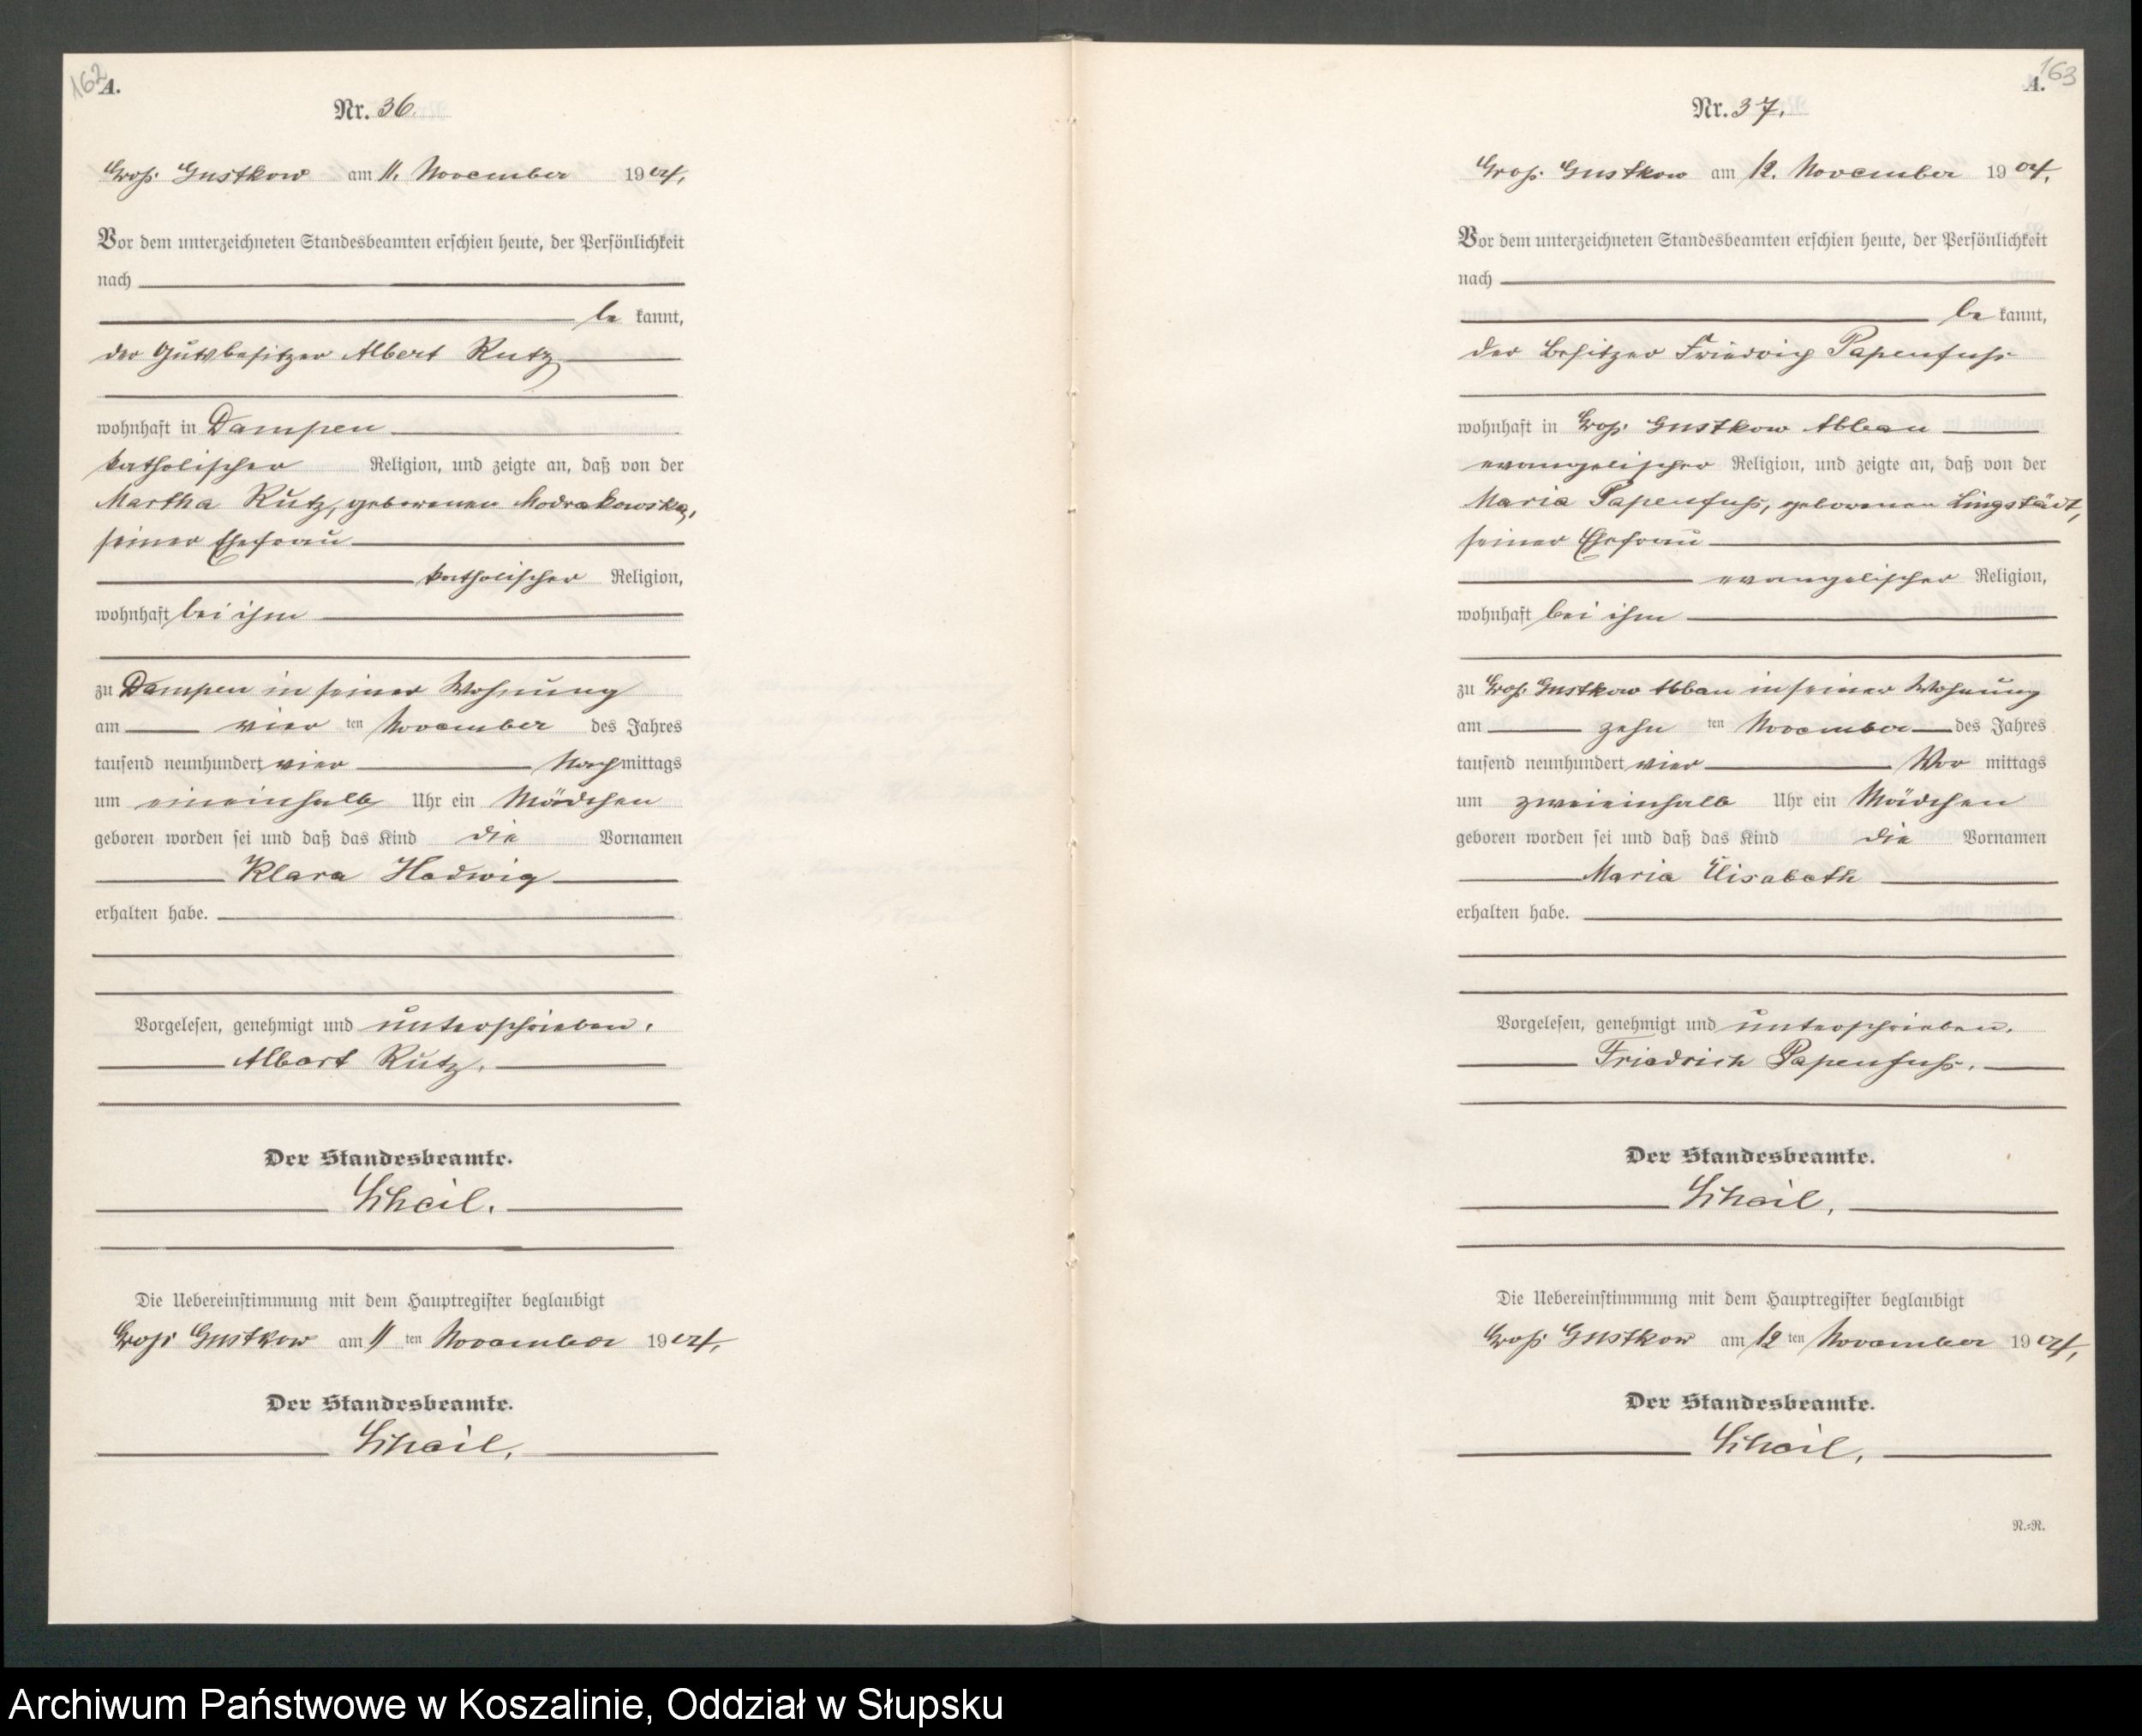 162
A.
Nr. 36.
Groß Gustkow am 11. November 1904.
Vor dem unterzeichneten Standesbeamten erschien heute, der Persönlichkeit
nach
be kannt,
der Gutsbesitzer Albert Rutz
wohnhaft in Dampen
katholischer Religion, und zeigte an, daß von der
Martha Rutz, geborenen Modrakowska,
seiner Ehefrau
katholischer Religion,
wohnhaft bei ihm
zu Dampen in seiner Wohnung
am vier ten November des Jahres
tausend neunhundert vier Nachmittags
um eineinhalb Uhr ein Mädchen
geboren worden sei und daß das Kind die Vornamen
Klara Hedwig
erhalten habe.
Vorgelesen, genehmigt und unterschrieben.
Albert Rutz.
Der Standesbeamte.
Scheil.
Die Uebereinstimmung mit dem Hauptregister beglaubigt
Groß Gustkow am 11 ten November 1904.
Der Standesbeamte.
Scheil.
163
A.
Nr. 37.
Groß Gustkow am 12. November 1904.
Vor dem unterzeichneten Standesbeamten erschien heute, der Persönlichkeit
nach
be kannt,
der Besitzer Friedrich Papenfuss
wohnhaft in Groß Gustkow Abbau
evangelischer Religion, und zeigte an, daß von der
Maria Papenfuss, geborenen Lingstädt,
seiner Ehefrau
evangelischer Religion,
wohnhaft bei ihm
zu Groß Gustkow Abbau in seiner Wohnung
am zehn ten November des Jahres
tausend neunhundert vier Vor mittags
um zweieinhalb Uhr ein Mädchen
geboren worden sei und daß das Kind die Vornamen
Maria Elisabeth
erhalten habe.
Vorgelesen, genehmigt und unterschrieben.
Friedrich Papenfuss.
Der Standesbeamte.
Scheil.
Die Uebereinstimmung mit dem Hauptregister beglaubigt
Groß Gustkow am 12 ten November 1904.
Der Standesbeamte.
Scheil.
R.=R.
Archiwum Państwowe w Koszalinie, Oddział w Słupsku